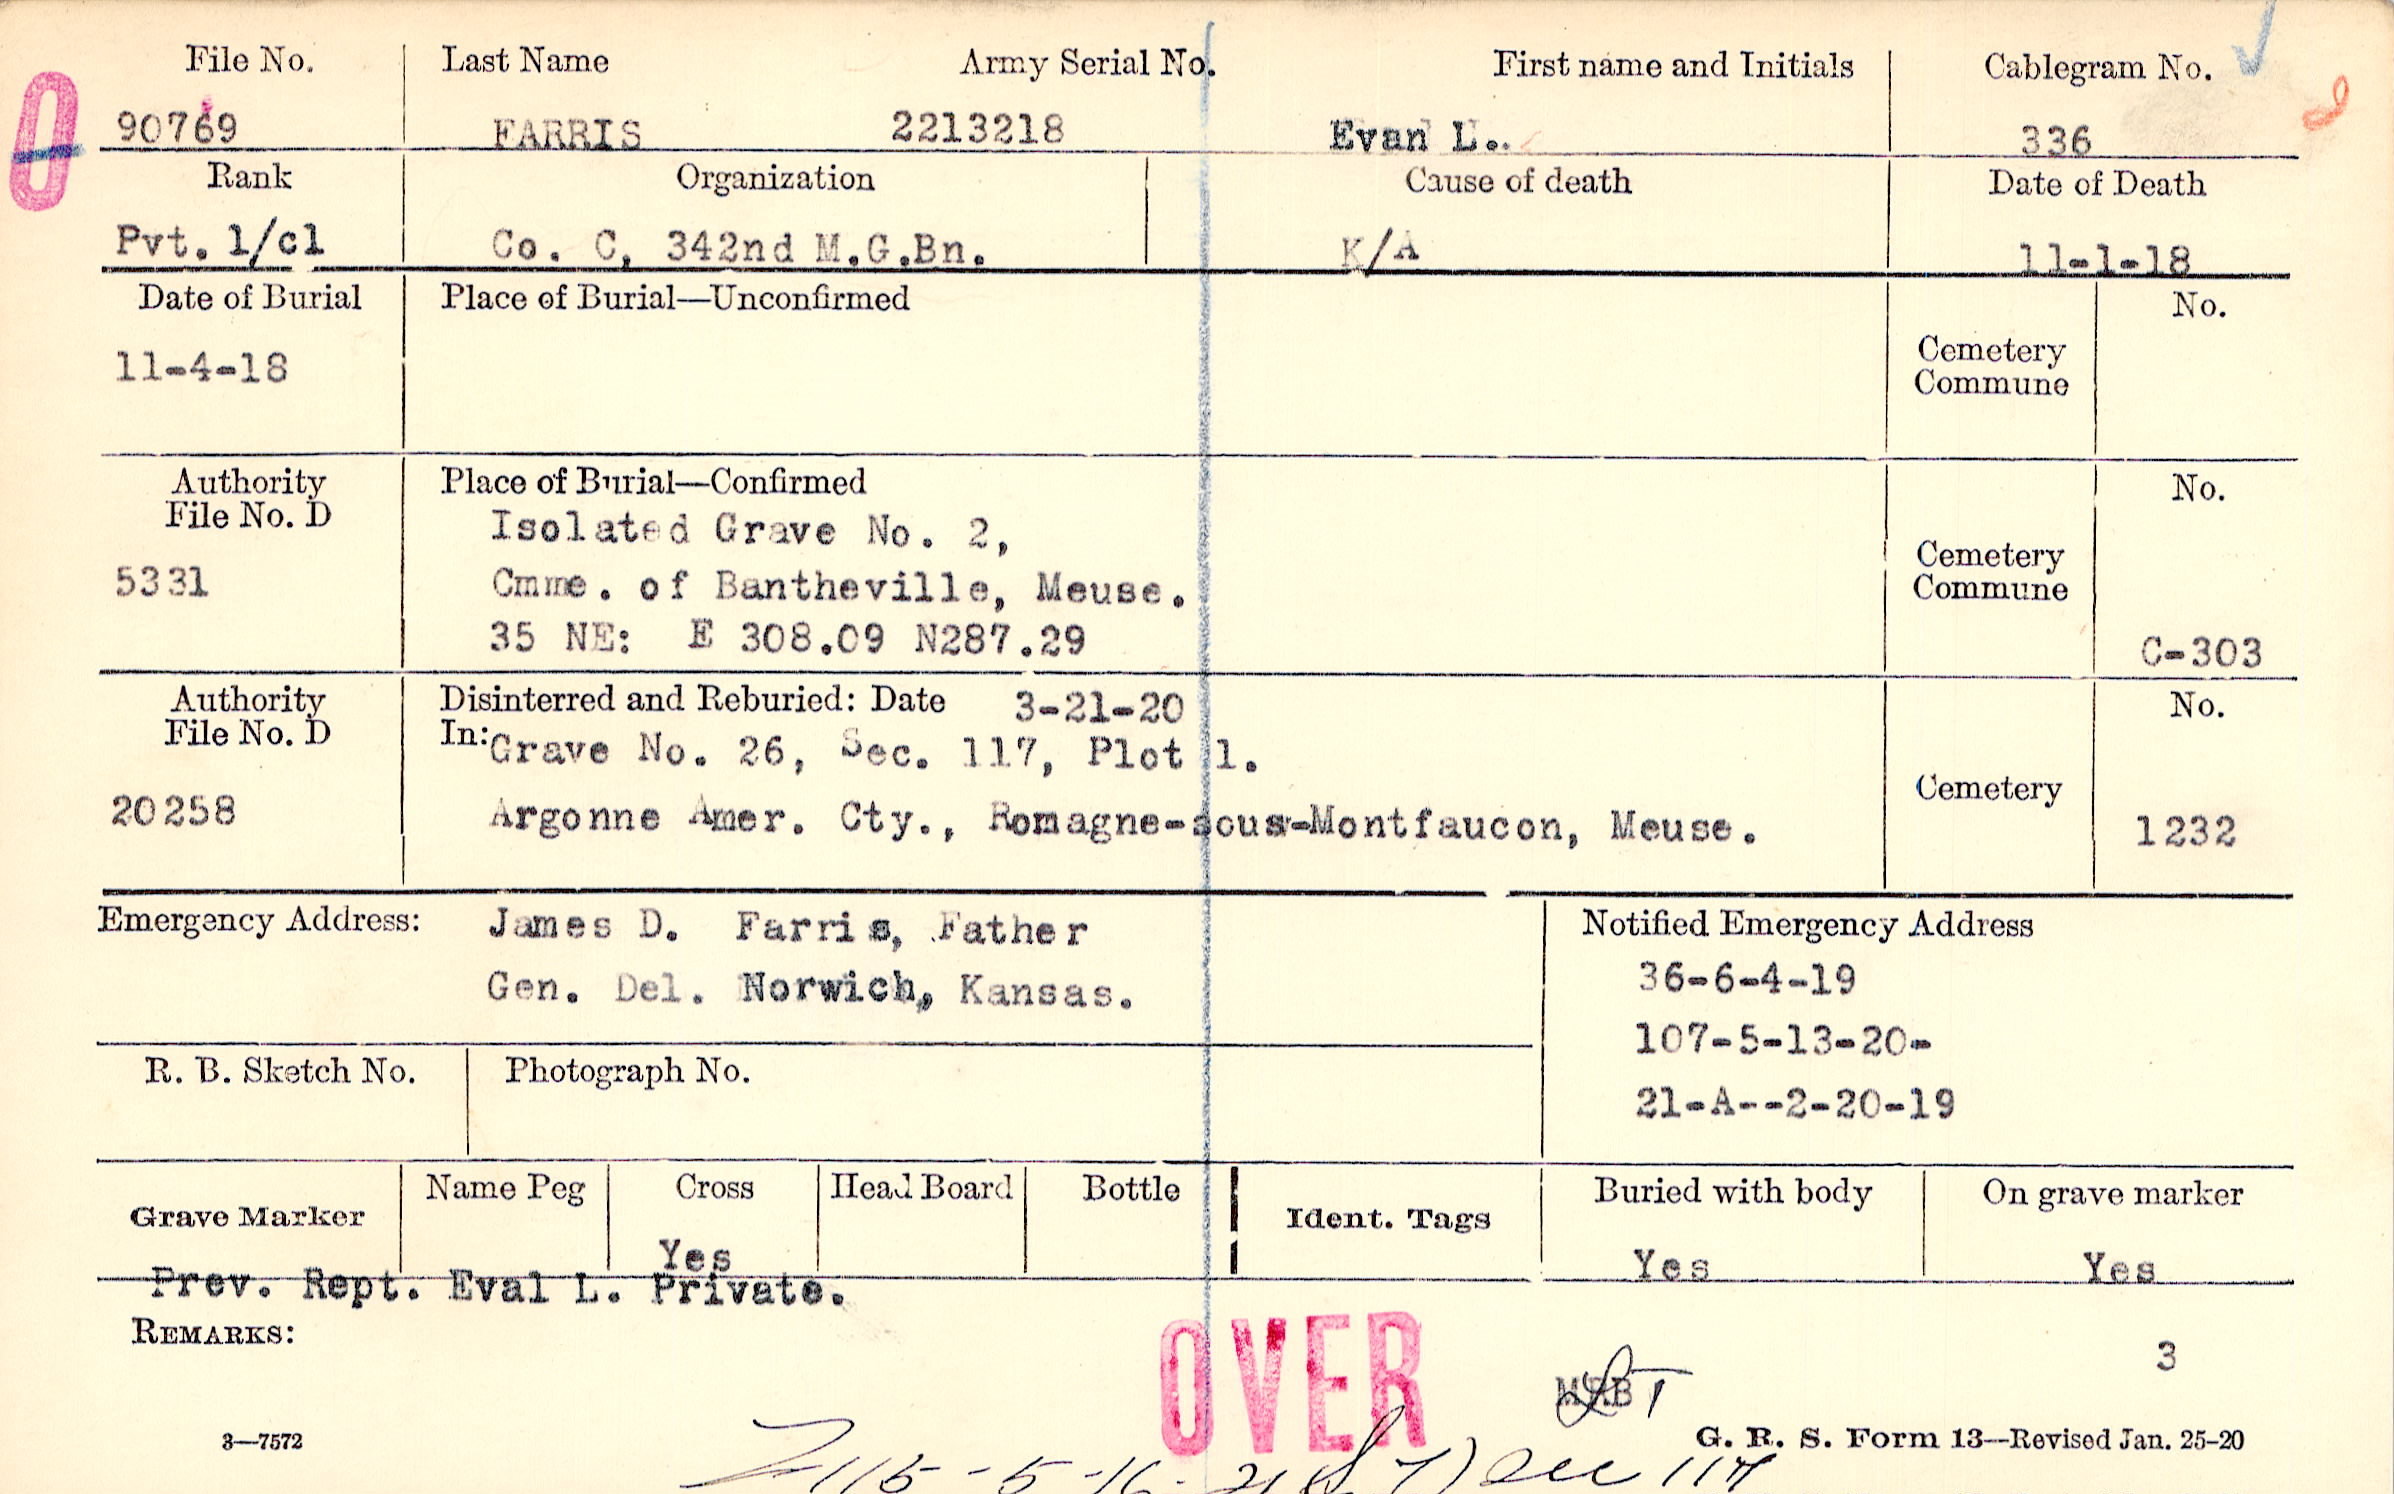 File No. Last Name Army Serial No. First name and Initials Cablegram No.
90769 FARRIS 2213218 Evan L. 336
Rank Organization Cause of death Date of Death
Pvt. 1/cl Co. C, 342nd M.G.Bn. K/A 11-1-18
Date of Burial Place of Burial—Unconfirmed No.
11-4-18 Cemetery
Commune
Authority Place of Burial—Confirmed No.
File No. D Isolated Grave No. 2,
5331 Cmme. of Bantheville, Meuse. Cemetery
Commune
35 NE: E 308.09 N287.29 C-303
Authority Disinterred and Reburied: Date 3-21-20 No.
File No. D In: Grave No. 26, Sec. 117, Plot 1.
Cemetery
20258 Argonne Amer. Cty., Romagne-sous-Montfaucon, Meuse. 1232
Emergency Address: James D. Farris, Father Notified Emergency Address
Gen. Del. Norwich, Kansas. 36-6-4-19
107-5-13-20-
R. B. Sketch No. Photograph No.
21-A--2-20-19
Grave Marker Name Peg Cross Head Board Bottle Ident. Tags Buried with body On grave marker
Yes Yes Yes
Prev. Rept. Eval L. Private.
REMARKS:
3
OVER
3—7572 G. R. S. Form 13—Revised Jan. 25-20